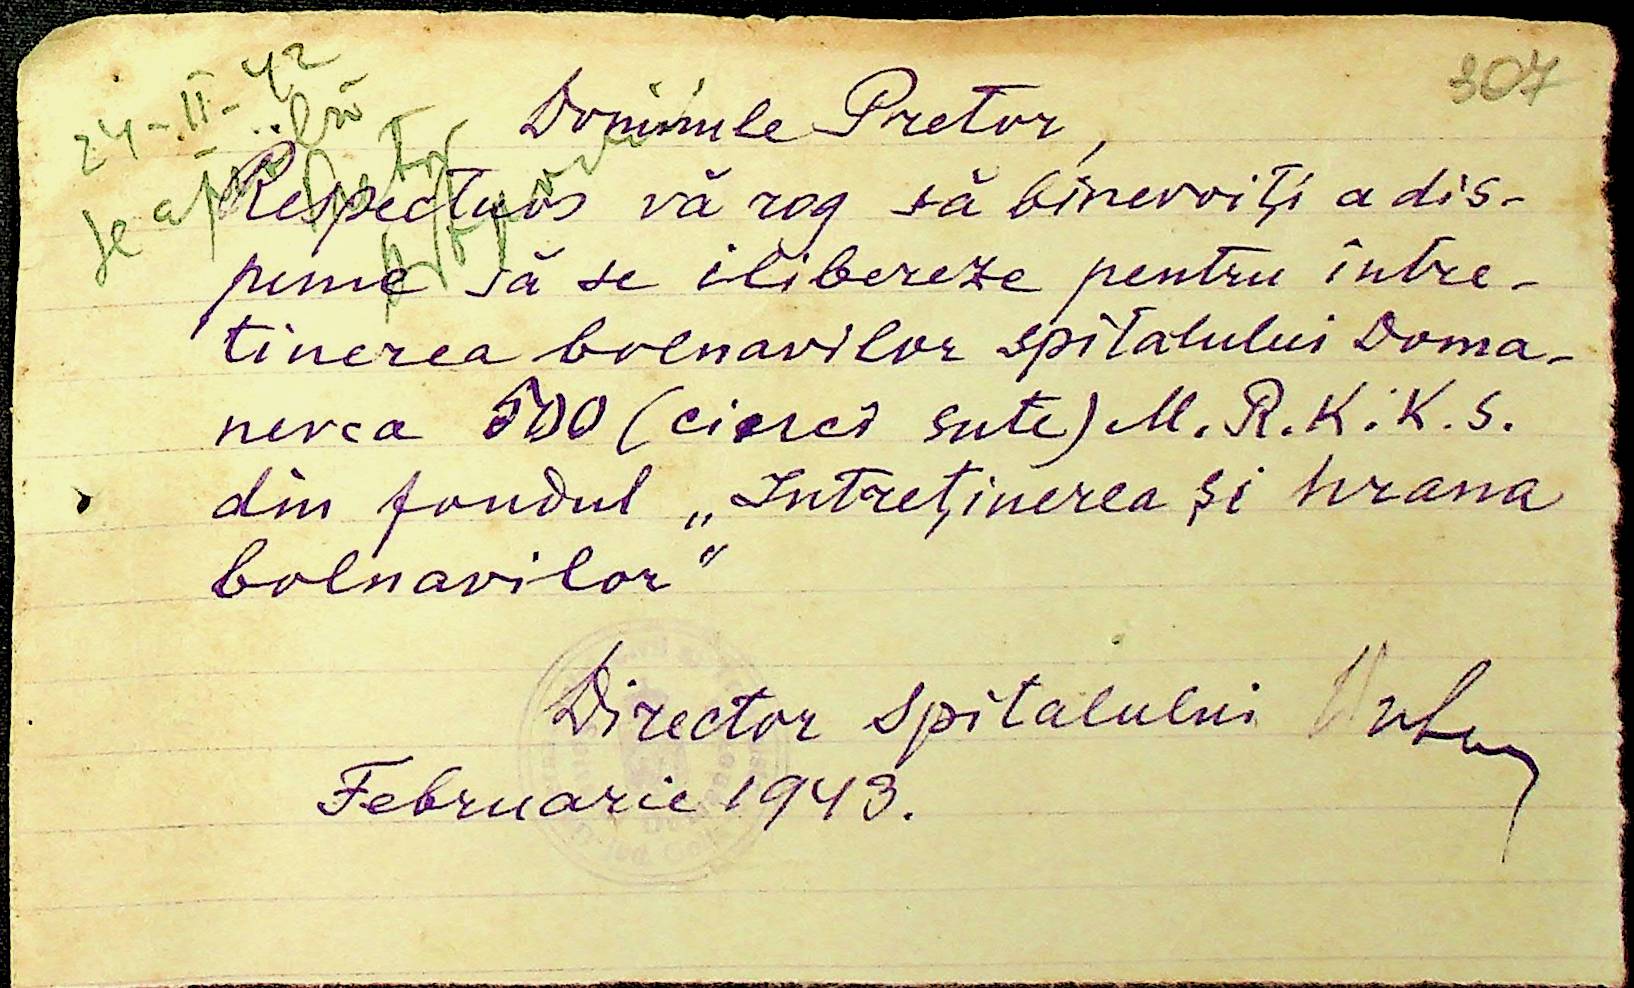 307
24-II-42
se aprobă
Domnule Pretor,
Respectuos vă rog să binevoiți a dis-
pune să se elibereze pentru între-
tinerea bolnavilor spitalului Doma-
nevca 500 (cinci sute) M. R. K. K. S.
din fondul „Intreținerea și hrana
bolnavilor"
Director spitalului
Februarie 1943.